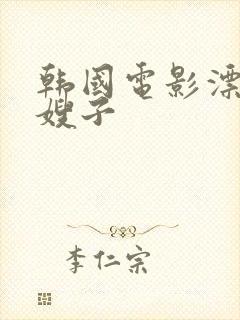 韩国電影漂
嫂子
李仁宗